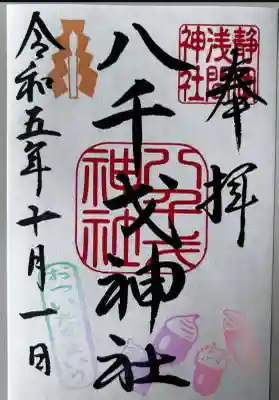 奉拝
静岡
浅間
神社
八千戈神社
八千戈
神社
令和五年十月一日